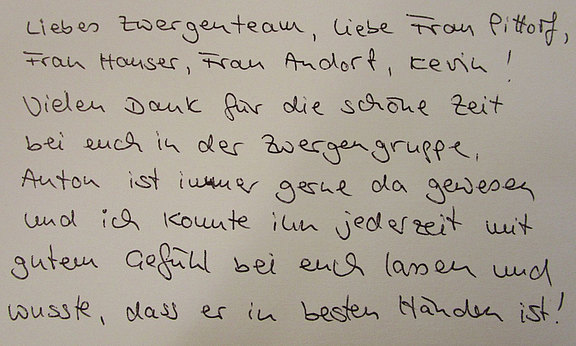 Liebes Zwergenteam, liebe Frau Pittorf,
Frau Hauser, Frau Andorf, Kevin!
Vielen Dank für die schöne Zeit
bei euch in der Zwergengruppe.
Anton ist immer gerne da gewesen
und ich konnte ihn jederzeit mit
gutem Gefühl bei euch lassen und
wusste, dass er in besten Händen ist!